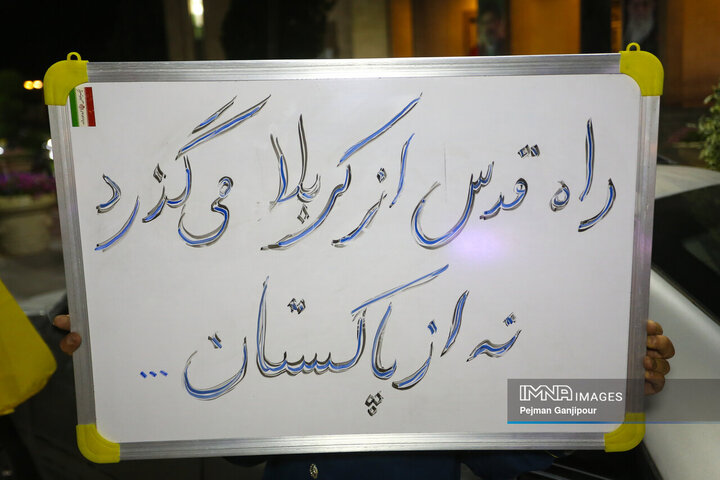 راه قدس از کربلا می گذرد
نه از پاکستان ...
IMNA IMAGES
Pejman Ganjipour